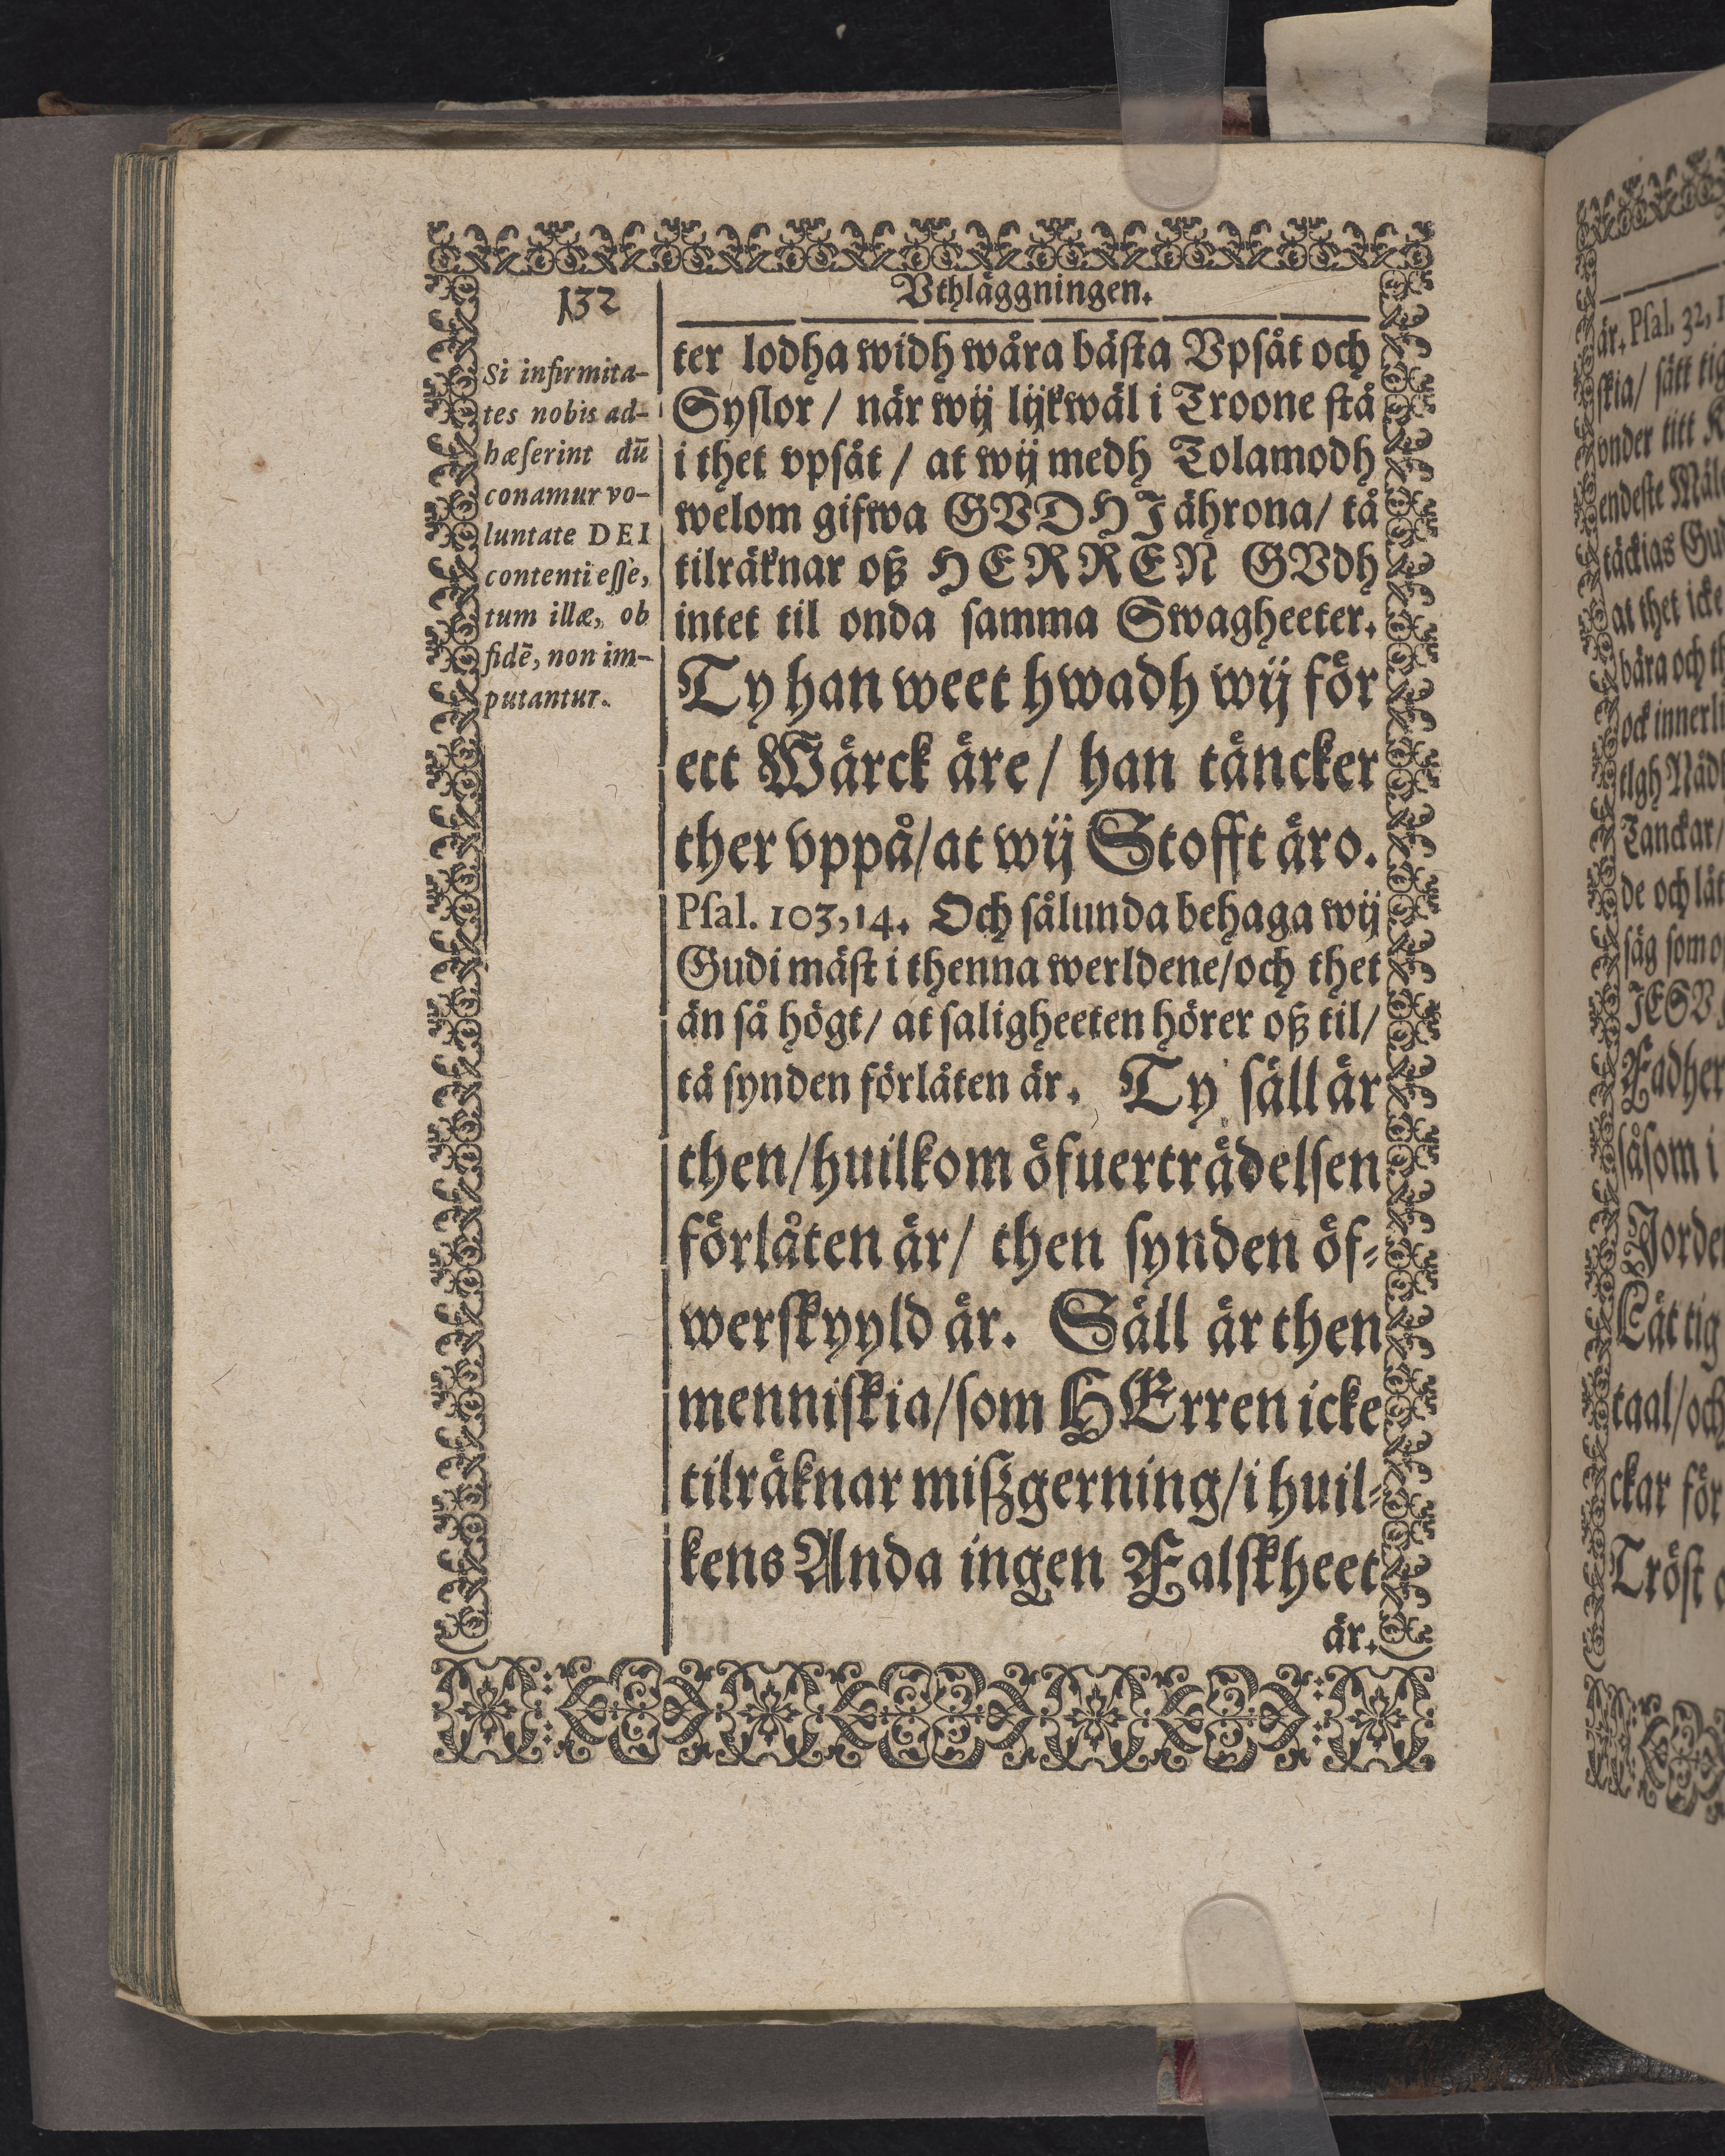 132
Vthläggningen.
Si infirmita-
tes nobis ad-
hæſerint dū
conamur vo-
luntate DEI
contenti eſſe,
tum illæ, ob
fidē, non im-
putantur.
ter lodha widh wåra bäſta Vpſåt och
Syſlor / när wij lijkwäl i Troone ſtå
i thet vpſåt / at wij medh Tolamodh
welom gifwa GVDHJ ährona/ tå
tilräknar oß HERREN GVdh
intet til onda ſamma Swagheeter.
Ty han weet hwadh wij för
ett Wärck äre/ han täncker
ther vppå/at wij Stofft äro.
Pſal. 103,14. Och ſålunda behaga wij
Gudi mäſt i thenna werldene/och thet
än ſå högt/ at ſaligheeten hörer oß til/
tå ſynden förlåten är. Ty ſäll är
then/huilkom öfuerträdelſen
förlåten är/ then ſynden öf-
werſkyyld är. Säll är then
menniſkia/ſom HErren icke
tilräknar mißgerning/i huil-
kens Anda ingen Falſkheet
är.
är. Pſal. 32,
ſkia/ ſätt tig
vnder titt
endeſte
täckias
at thet icke
bära och
ock innerli
Tanckar/
de och låt
ſåg ſom
Fadher
ſåſom i
Jorden
Låt tig
taal/och
ckar för
Tröſt